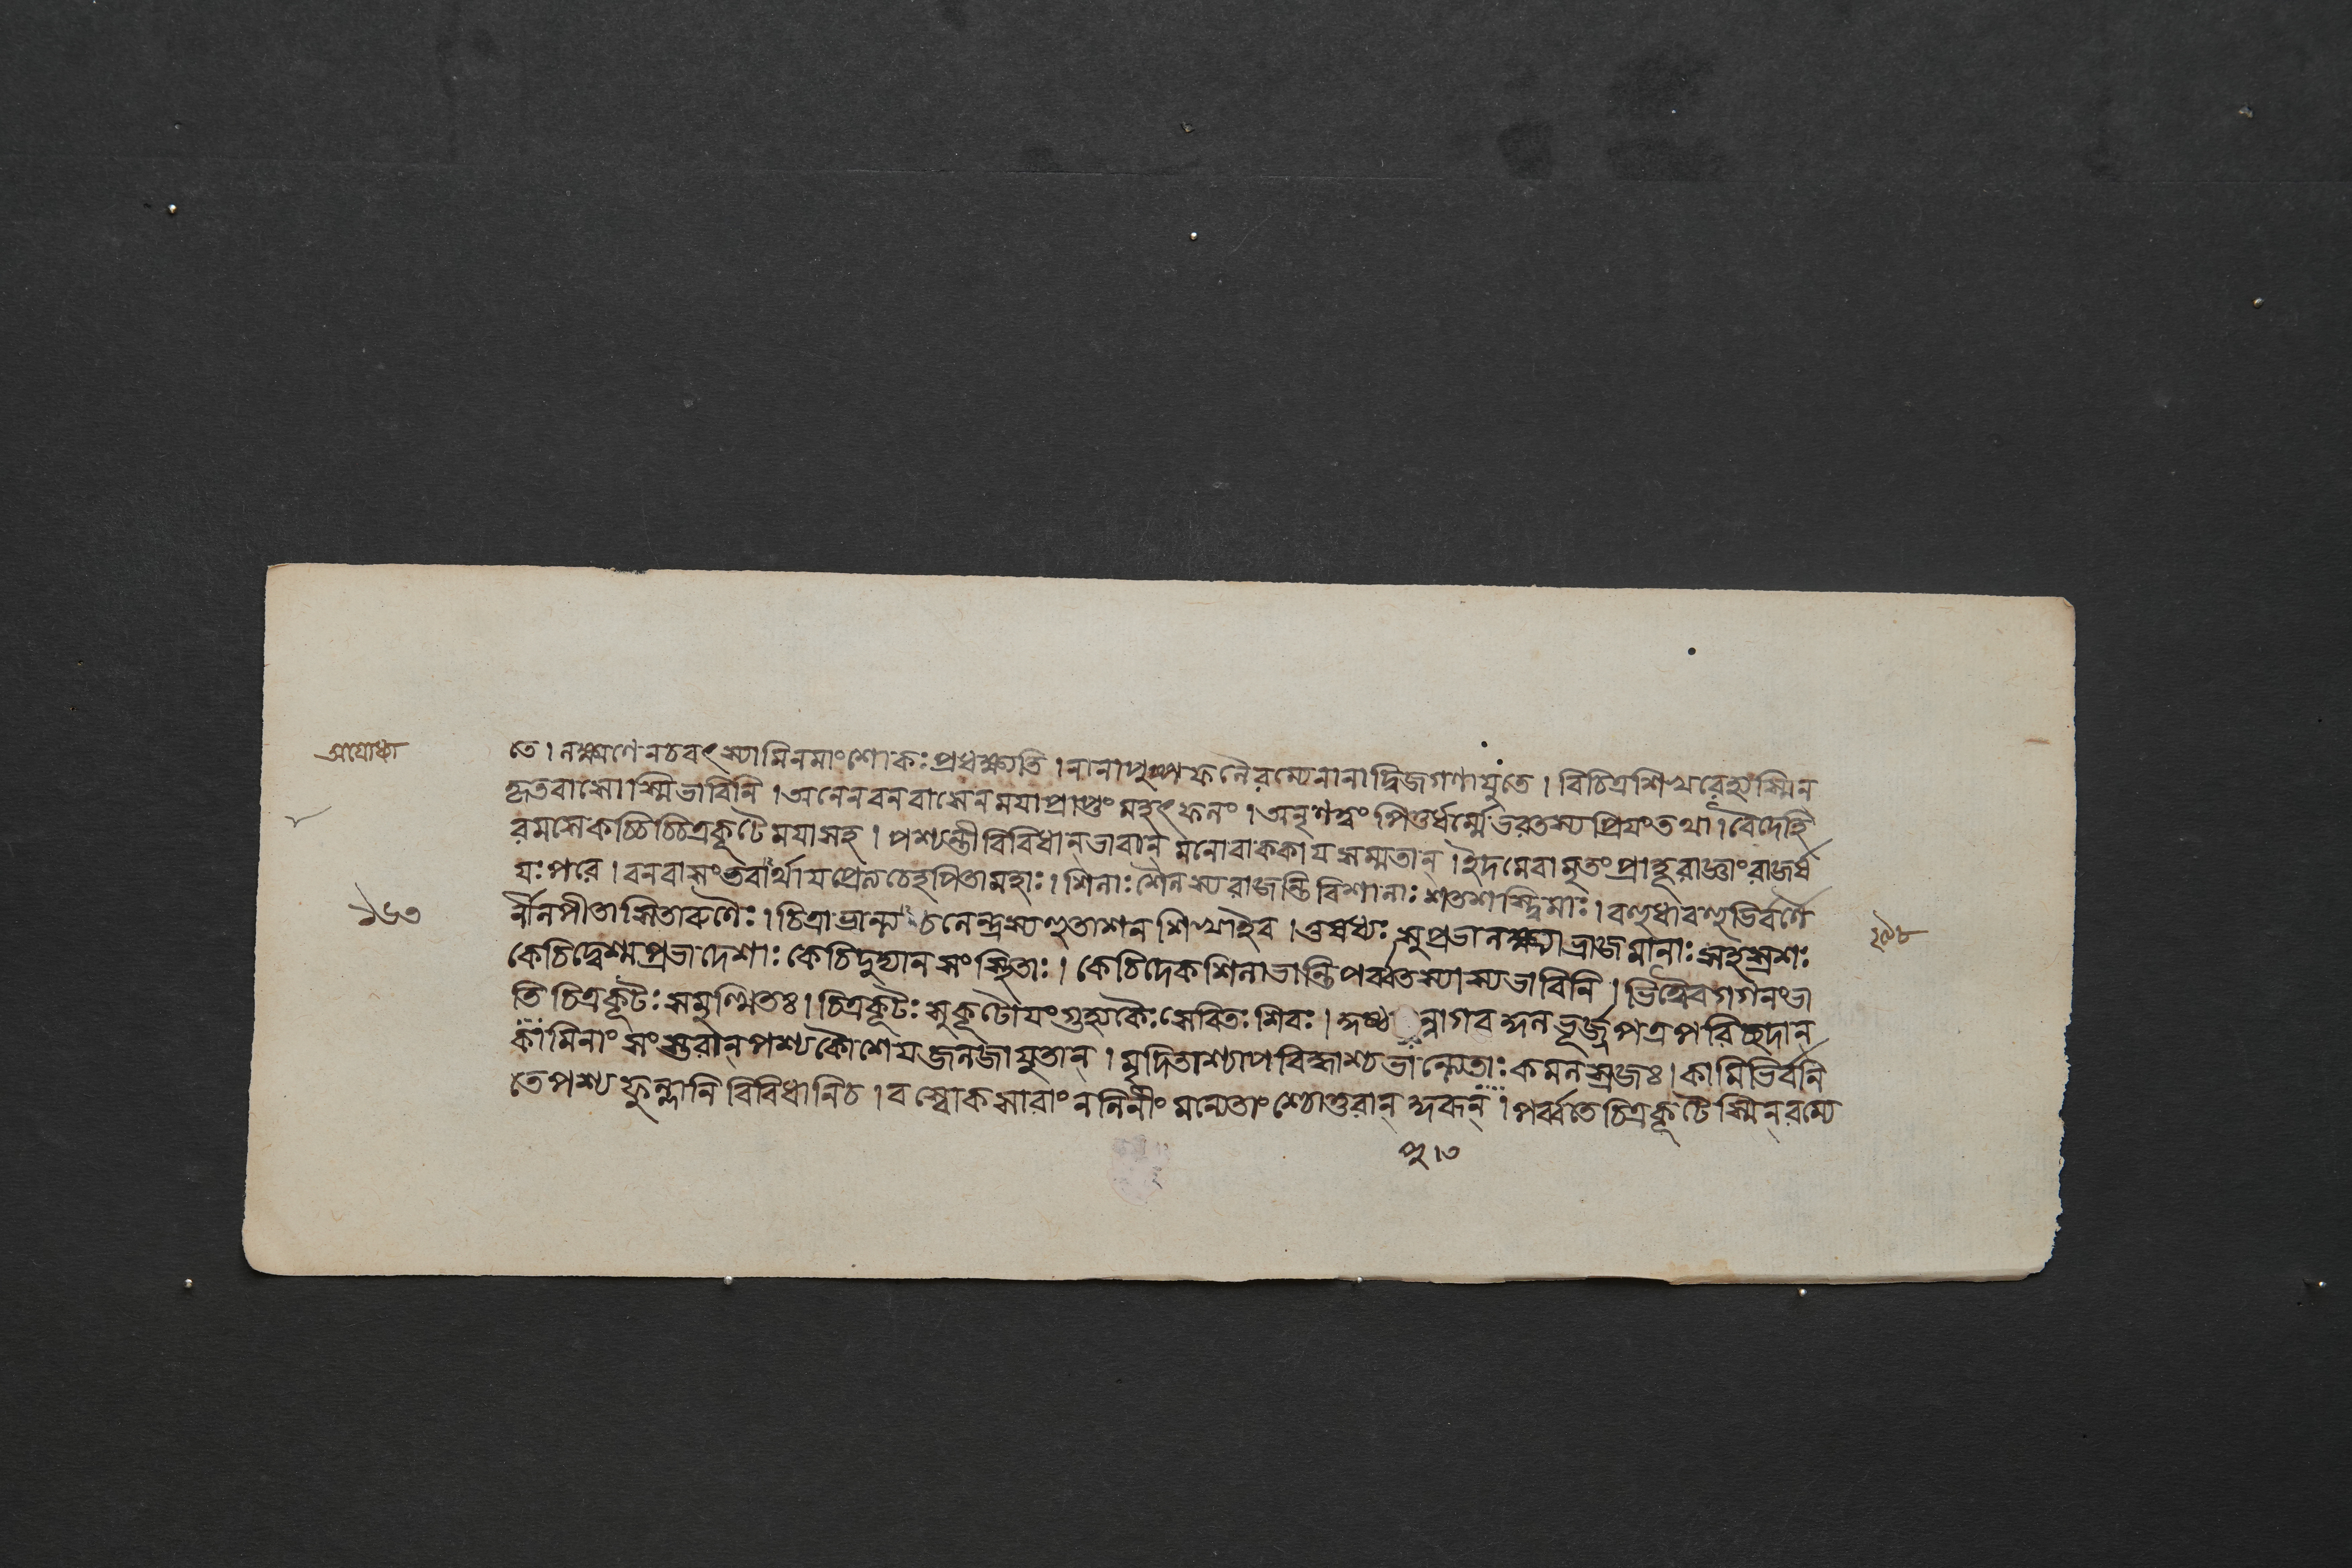 তে। লক্ষ্মণেনচবৎস্যামিনমাংশোকঃপ্রধক্ষ্যতি। নানাপুষ্পফলৈরম্যেনানাদ্বিজগণাযুতে। বিচিত্রশিখরেহ্যস্মিন্
কৃতবাসোস্মিভাবিনি। অনেনবনবাসেনমযাপ্রাপ্তংমহৎফলং। অনৃণত্বংপিতুর্ধর্ম্মেভরতস্যপ্রিযংতথা। বৈদেহি
রমসেকচ্চিচ্চিত্রকূটেমযাসহ। পশ্যন্তীবিবিধান্ভাবান্ মনোবাককাযসম্মতান্। ইদমেবামৃতংপ্রাহূরাজ্ঞাংরাজর্ষ
যঃপরে। বনবাসংভবার্থাযপ্রেত্যচেহপিতামহাঃ। শিলাঃশৈলস্যরাজন্তিবিশালাঃশতশস্ত্বিমাঃ। বহুধাবহুভির্বর্ণৈ
র্নীলপীতাসিতারুণৈঃ। চিত্রাভান্ত্যচলেন্দ্রস্যহুতাশনশিখাইব। ওষধ্যঃসুপ্রভালক্ষ্ম্যাভ্রাজমানাঃসহস্রশঃ
কেচিদ্বেশ্মপ্রভাদেশাঃকেচিদুদ্যানসংস্থিতাঃ। কেচিদেকশিলাভান্তিপর্ব্বতস্যাস্যভাবিনি। ভিত্ত্বেবগগনংভা
তিচিত্রকূটঃসমুত্থিতঃ। চিত্রকূটঃসুকূটোযংগুহ্যকৈঃসেবিতঃশিবঃ। ন্নাগবন্দনভূর্জ্জপত্রপরিচ্ছদান্
কামিনাংসংস্তরান্পশ্যকৌশেযজলজাযুতান্। মৃদিতাশ্চাপবিদ্ধাশ্চভান্ত্যেতাঃকমলস্রজঃ। কামিভির্বনি
তেপশ্যফুল্লানিবিবিধানিচ। বস্বোকসারাংনলিনীং পর্ব্বতেচিত্রকূটেস্মিন্রম্যে
অযোধ্যা
১৬৩
২৯৮
পু।৩